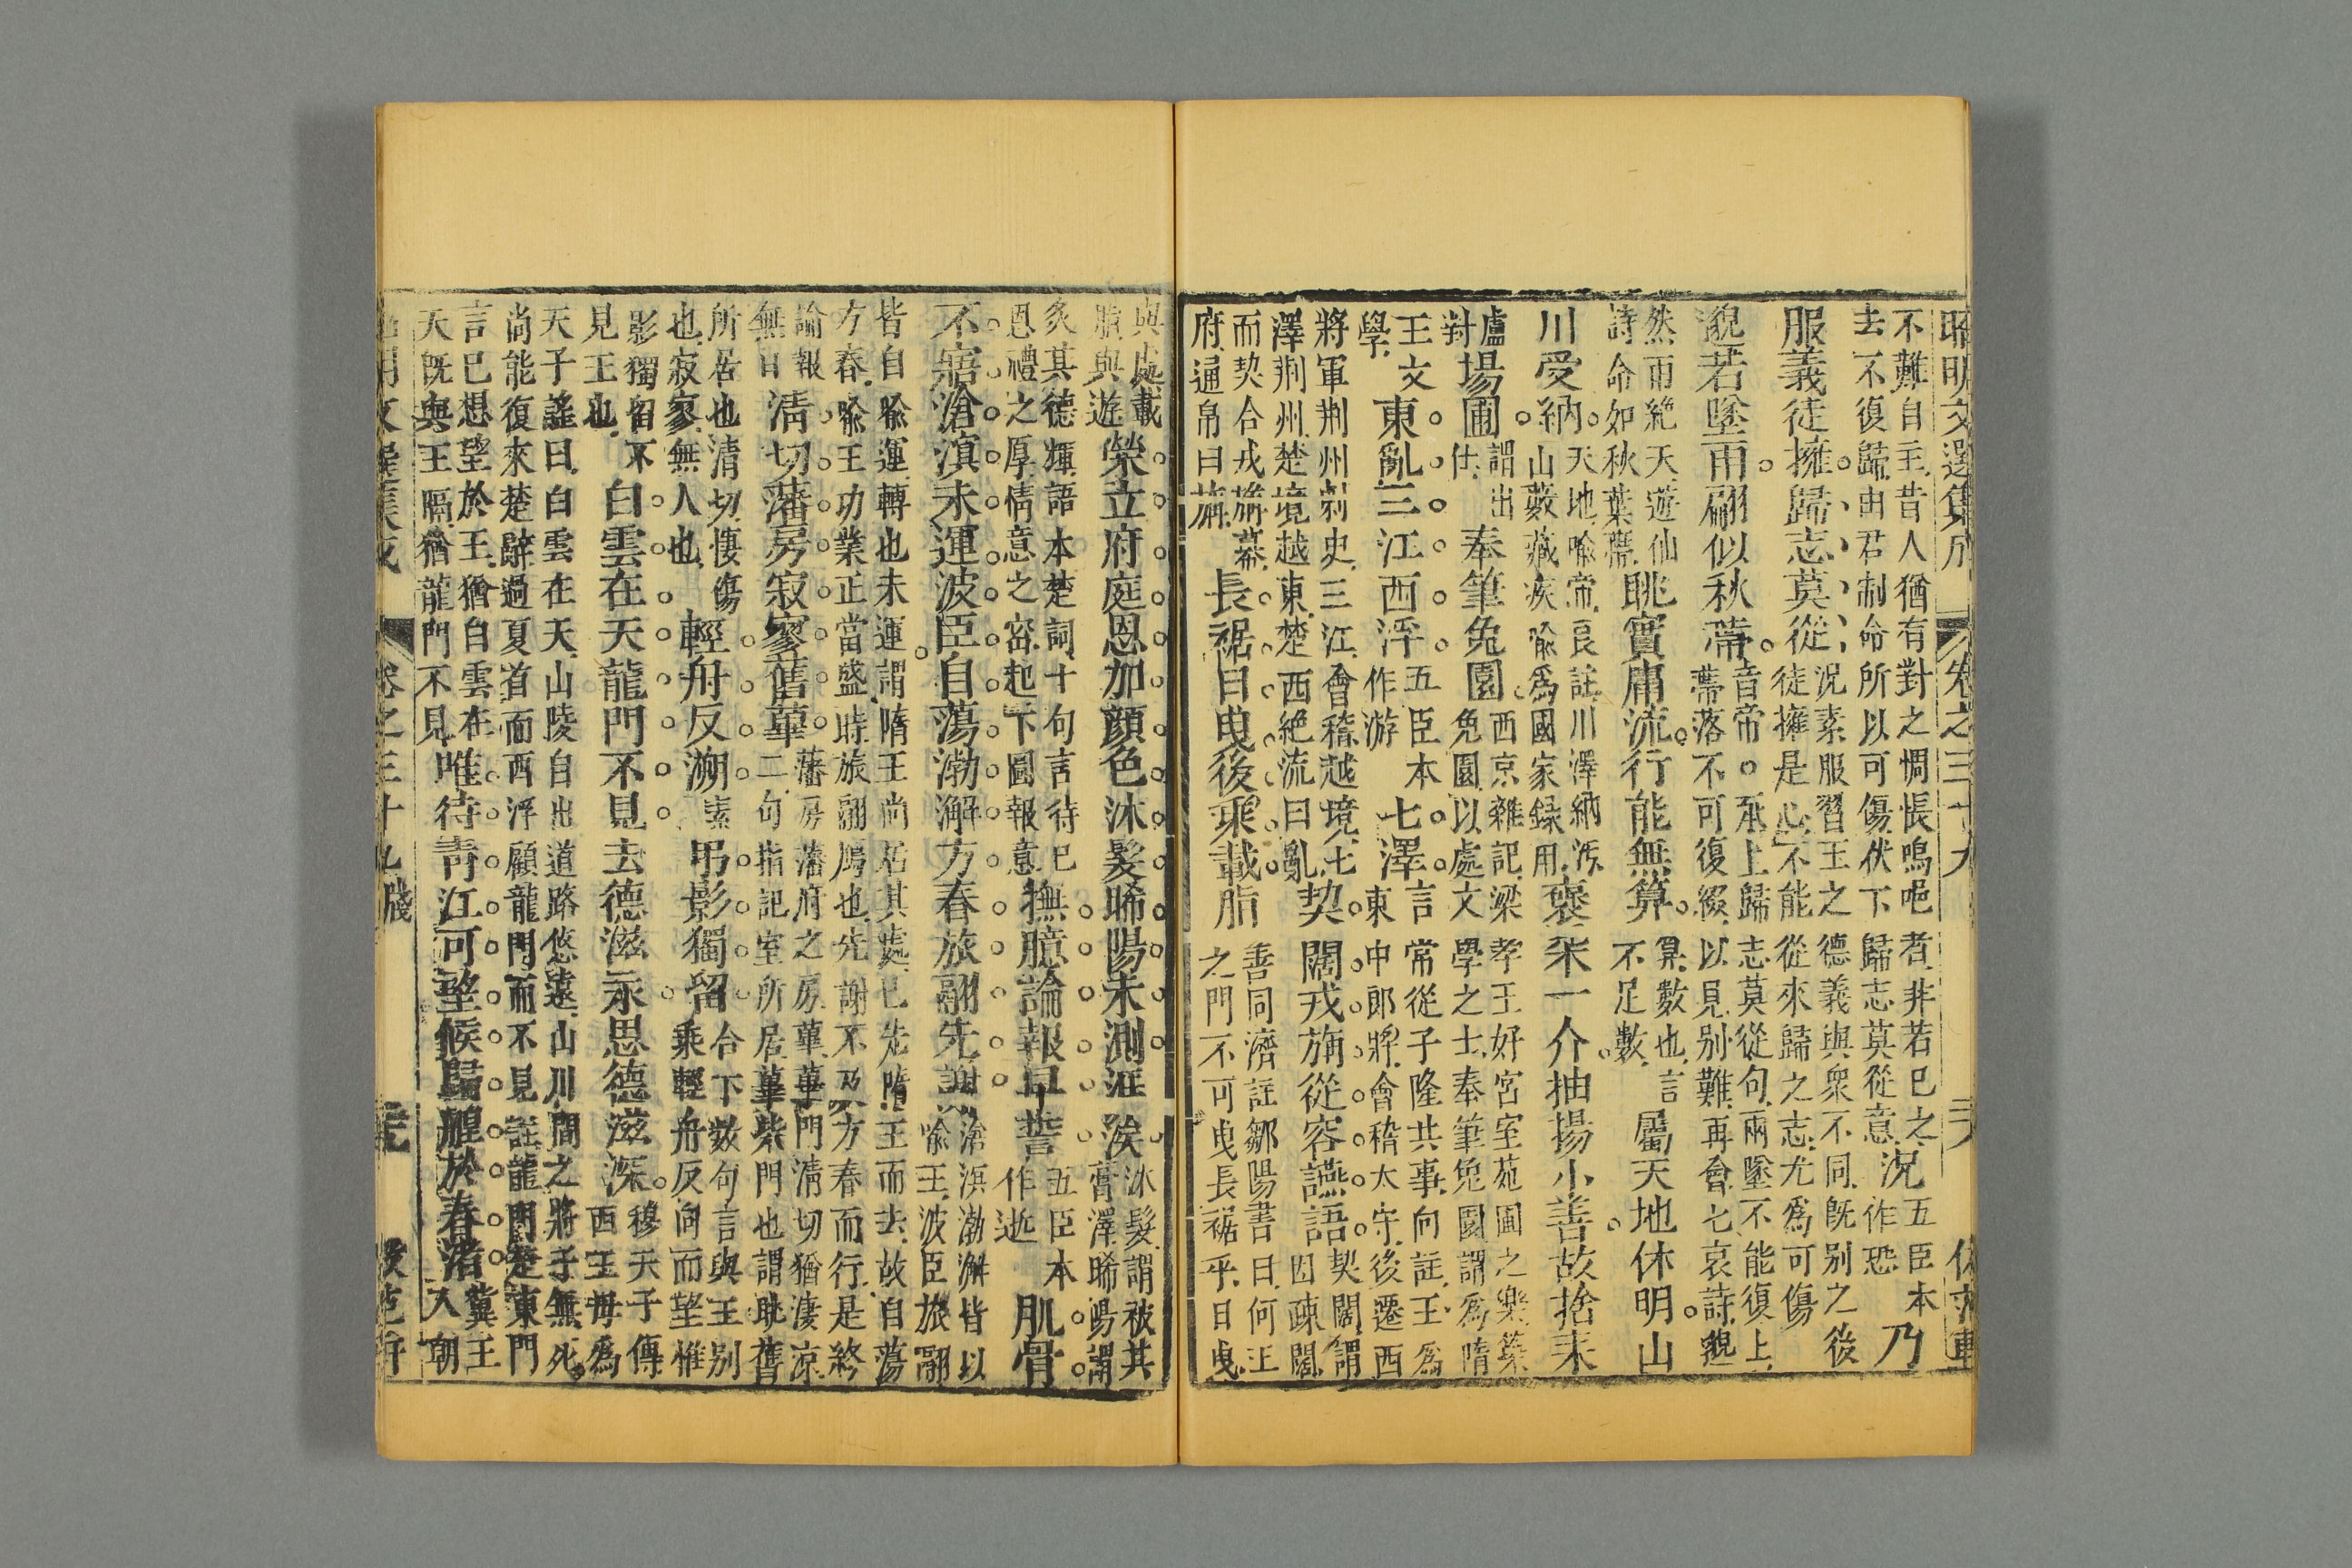 昭明文選集成 卷之三十九
不難自主昔人猶有對之惆悵鳴唈者非若已之
去不復歸由君制命所以可傷伏下歸志莫從意
況
五臣本
作恐
乃
服義徒擁歸志莫從
況素服習王之德義與衆不同既别之後
徒擁是心不能從來歸之志尤爲可傷
邈若墜雨翩似秋蔕
音帝○承上歸志莫從句兩墜不能復上
蔕落不可復綴以見别難再會七哀詩邈
然雨絶天遊仙
詩命如秋葉蔕
眺實庸流行能無算
算數也言
不足數
屬天地休明山
川受納
天地喩帝良註川澤納汚
山藪藏疾喩爲國家録用
襃采一介抽揚小善故捨耒
盧
對
場圃
謂出
仕
奉筆兔園
西京雜記梁孝王好宮室苑圃之樂築
兔園以處文學之士奉筆兔園謂爲隋
王文
學
東亂三江西浮
五臣本
作游
七澤
言常從子隆共事向註王爲
東中郎將會稽大守後遷西
將軍荆州刺史三江會稽越境七
澤荆州楚境越東楚西絶流曰亂
契闊戎旃從容讌語
契闊謂
因疎闊
而契合戎旃幕
府通帛曰旃
長裾日曳後乘載脂
善同濟註鄒陽書曰何王
之門不可曳長裾乎日曳
與處載
脂與遊
榮立府庭恩加顔色沐髮晞陽未測涯涘
沐髮謂被其
膏澤晞陽謂
炙其德輝語本楚詞十句言待已
恩禮之厚情意之密起下圖報意
撫臆論報早誓
五臣本
作逝
肌骨
不寤滄溟未運波臣自蕩渤澥方春旅翮先謝
滄溟渤澥皆以
喩王波臣旅翮
皆自喩運轉也未運謂隋王尚居其處已先隋王而去故自蕩
方春喩王功業正當盛時旅翮鴈也先謝不及方春而行是終
論報
無日
清切藩房寂寥舊蓽
藩房藩府之房蓽蓽門清切猶淒凉
二句指記室所居蓽柴門也謂眺舊
所居也清切悽傷
也寂寥無人也
輕舟反溯
素
弔影獨留
合下數句言與王别
乘輕舟反向而望惟
影獨留不
見王也
白雲在天龍門不見去德滋永思德滋深
穆天子傳
西王母爲
天子謠曰白雲在天山陵自出道路悠遠山川間之將子無死
尚能復來楚辭過夏首而西浮顧龍門而不見註龍門楚東門
言已想望於王猶白雲在
天既與王隔猶龍門不見
唯待青江可望候歸艎於春渚
冀王
入朝
卷之三十九 牋